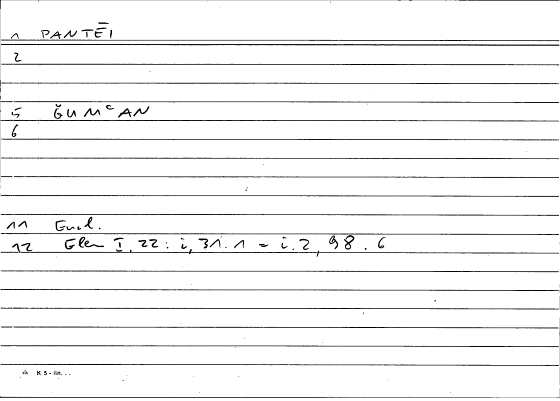 1 PANTĒI
2
5 ǦUMʿAN
6
11 Eucl.
12 Elem I.22: i, 31.1 = i.2, 98.6
K 5 - lin...